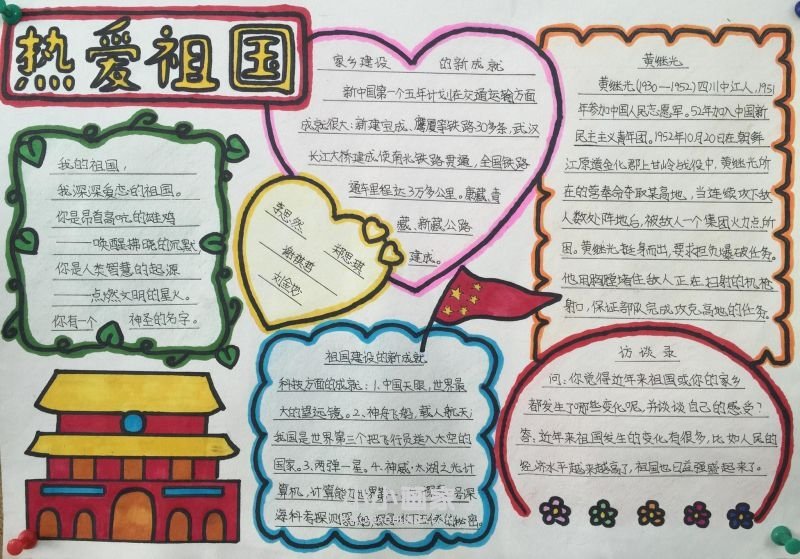 热爱祖国
我的祖国,
我深深爱恋的祖国。
你是昂首高吭的雄鸡
——唤醒拂晓的沉默
你是人类智慧的起源
——点燃文明的星火。
你有一个 神圣的名字。
家乡建设 的新成就
新中国第一个五年计划在交通运输方面
成就很大:新建宝成、鹰厦等铁路30多条,武汉
长江大桥建成使南北铁路贯通,全国铁路
通车里程达3万多公里。康藏、青
藏、新藏公路
建成。
李思然
郑思琪
刘金
黄继光
黄继光(1930—1952)四川中江人,1951
年参加中国人民志愿军。52年加入中国新
民主主义青年团。1952年10月20日在朝鲜
江原道金化郡上甘岭战役中,黄继光所
在的营奉命夺取某高地,当连续攻下敌
人数处阵地后,被敌人一个集团火力点所
阻。黄继光挺身而出,要求担负爆破任务。
他用胸膛堵住敌人正在扫射的机枪
射口,保证部队完成攻克高地的任务。
祖国建设的新成就
科技方面的成就:1、中国天眼,世界最
大的望远镜。2、神舟飞船,载人航天
我国是世界第三个把飞行员送入太空的
国家。3、两弹一星。4、神威·太湖之光计
算机,计算能力世界第
海科考探测 的秘密。
访谈录
问:你觉得近年来祖国或你的家乡
都发生了哪些变化呢,并谈谈自己的感受?
答:近年来祖国发生的变化有很多,比如人民的
经济水平越来越高了,祖国也日益强盛起来了。